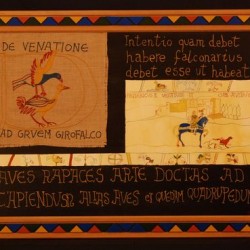 DE VENATIONE
AD GRVEM GIROFALCO
Intentio quam debet
habere falconarius
debet esse ut habeat
AVES RAPACES ARTE DOCTAS AD
CAPIENDUM ALIAS AVES ET QUEDAM QUADRUPEDUM